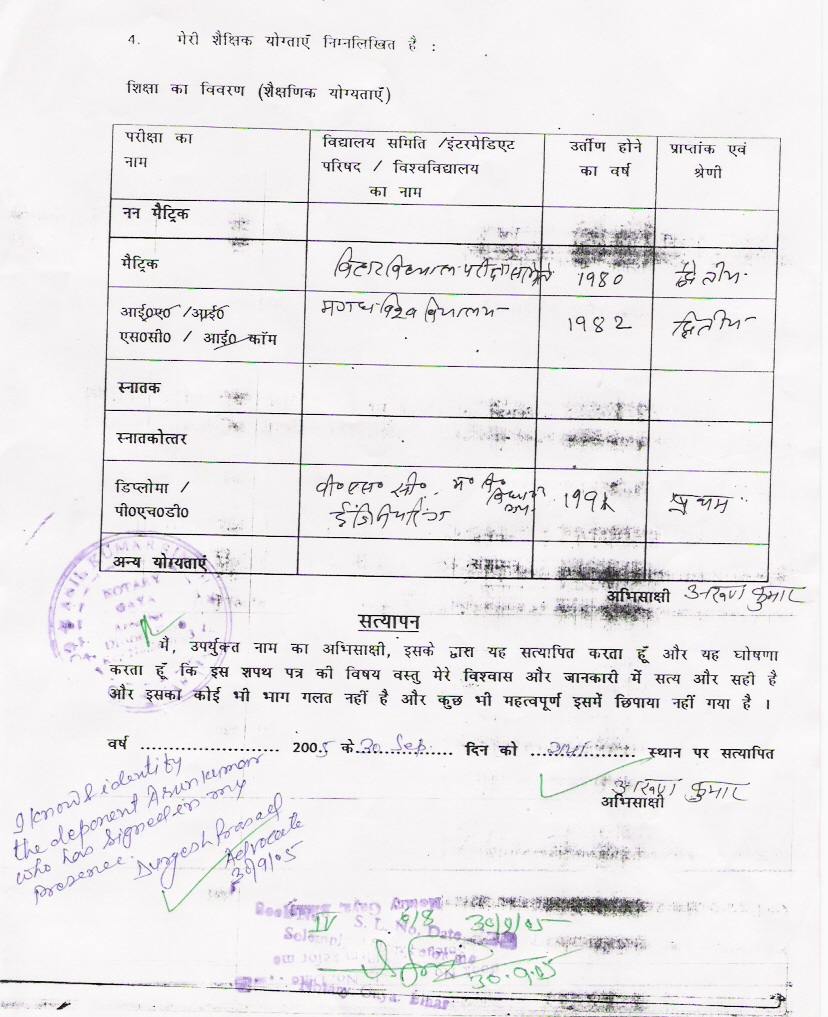 4. मेरी शैक्षिक योग्ताएँ निम्नलिखित है :
शिक्षा का विवरण (शैक्षणिक योग्यताएँ)
परीक्षा का
नाम
विद्यालय समिति /इंटरमेडिएट
परिषद / विश्वविद्यालय
का नाम
उर्तीण होने
का वर्ष
प्राप्तांक एवं
श्रेणी
नन मैट्रिक
मैट्रिक
बिहार विद्यालय परीक्षा समिति 1980 द्वितीय
आई०ए० /आई०
एस०सी० / आई० कॉम
मगध विश्व विद्यालय 1982 द्वितीय
स्नातक
स्नातकोत्तर
डिप्लोमा /
पी०एच०डी०
बी० एस० सी०
इंजिनियरिंग
प्रथम
अन्य योग्यताएं
अभिसाक्षी अरूण कुमार
ANIL KUMAR
NOTARY
GAYA
सत्यापन
मैं, उपर्युक्त नाम का अभिसाक्षी, इसके द्वारा यह सत्यापित करता हूँ और यह घोषणा
करता हूँ कि इस शपथ पत्र की विषय वस्तु मेरे विश्वास और जानकारी में सत्य और सही है
और इसका कोई भी भाग गलत नहीं है और कुछ भी महत्वपूर्ण इसमें छिपाया नहीं गया है ।
वर्ष ........................ 2005 के 30 Sep. दिन को गया स्थान पर सत्यापित
अरूण कुमार
अभिसाक्षी
I know & identity
the deponent Arun kumar
who has signed in my
Presence.
Durgesh Prasad
Advocate
30/9/05
IV 6/8 30/9/05
S. L. No. Date
30.9.05
Notary Gaya. Bihar